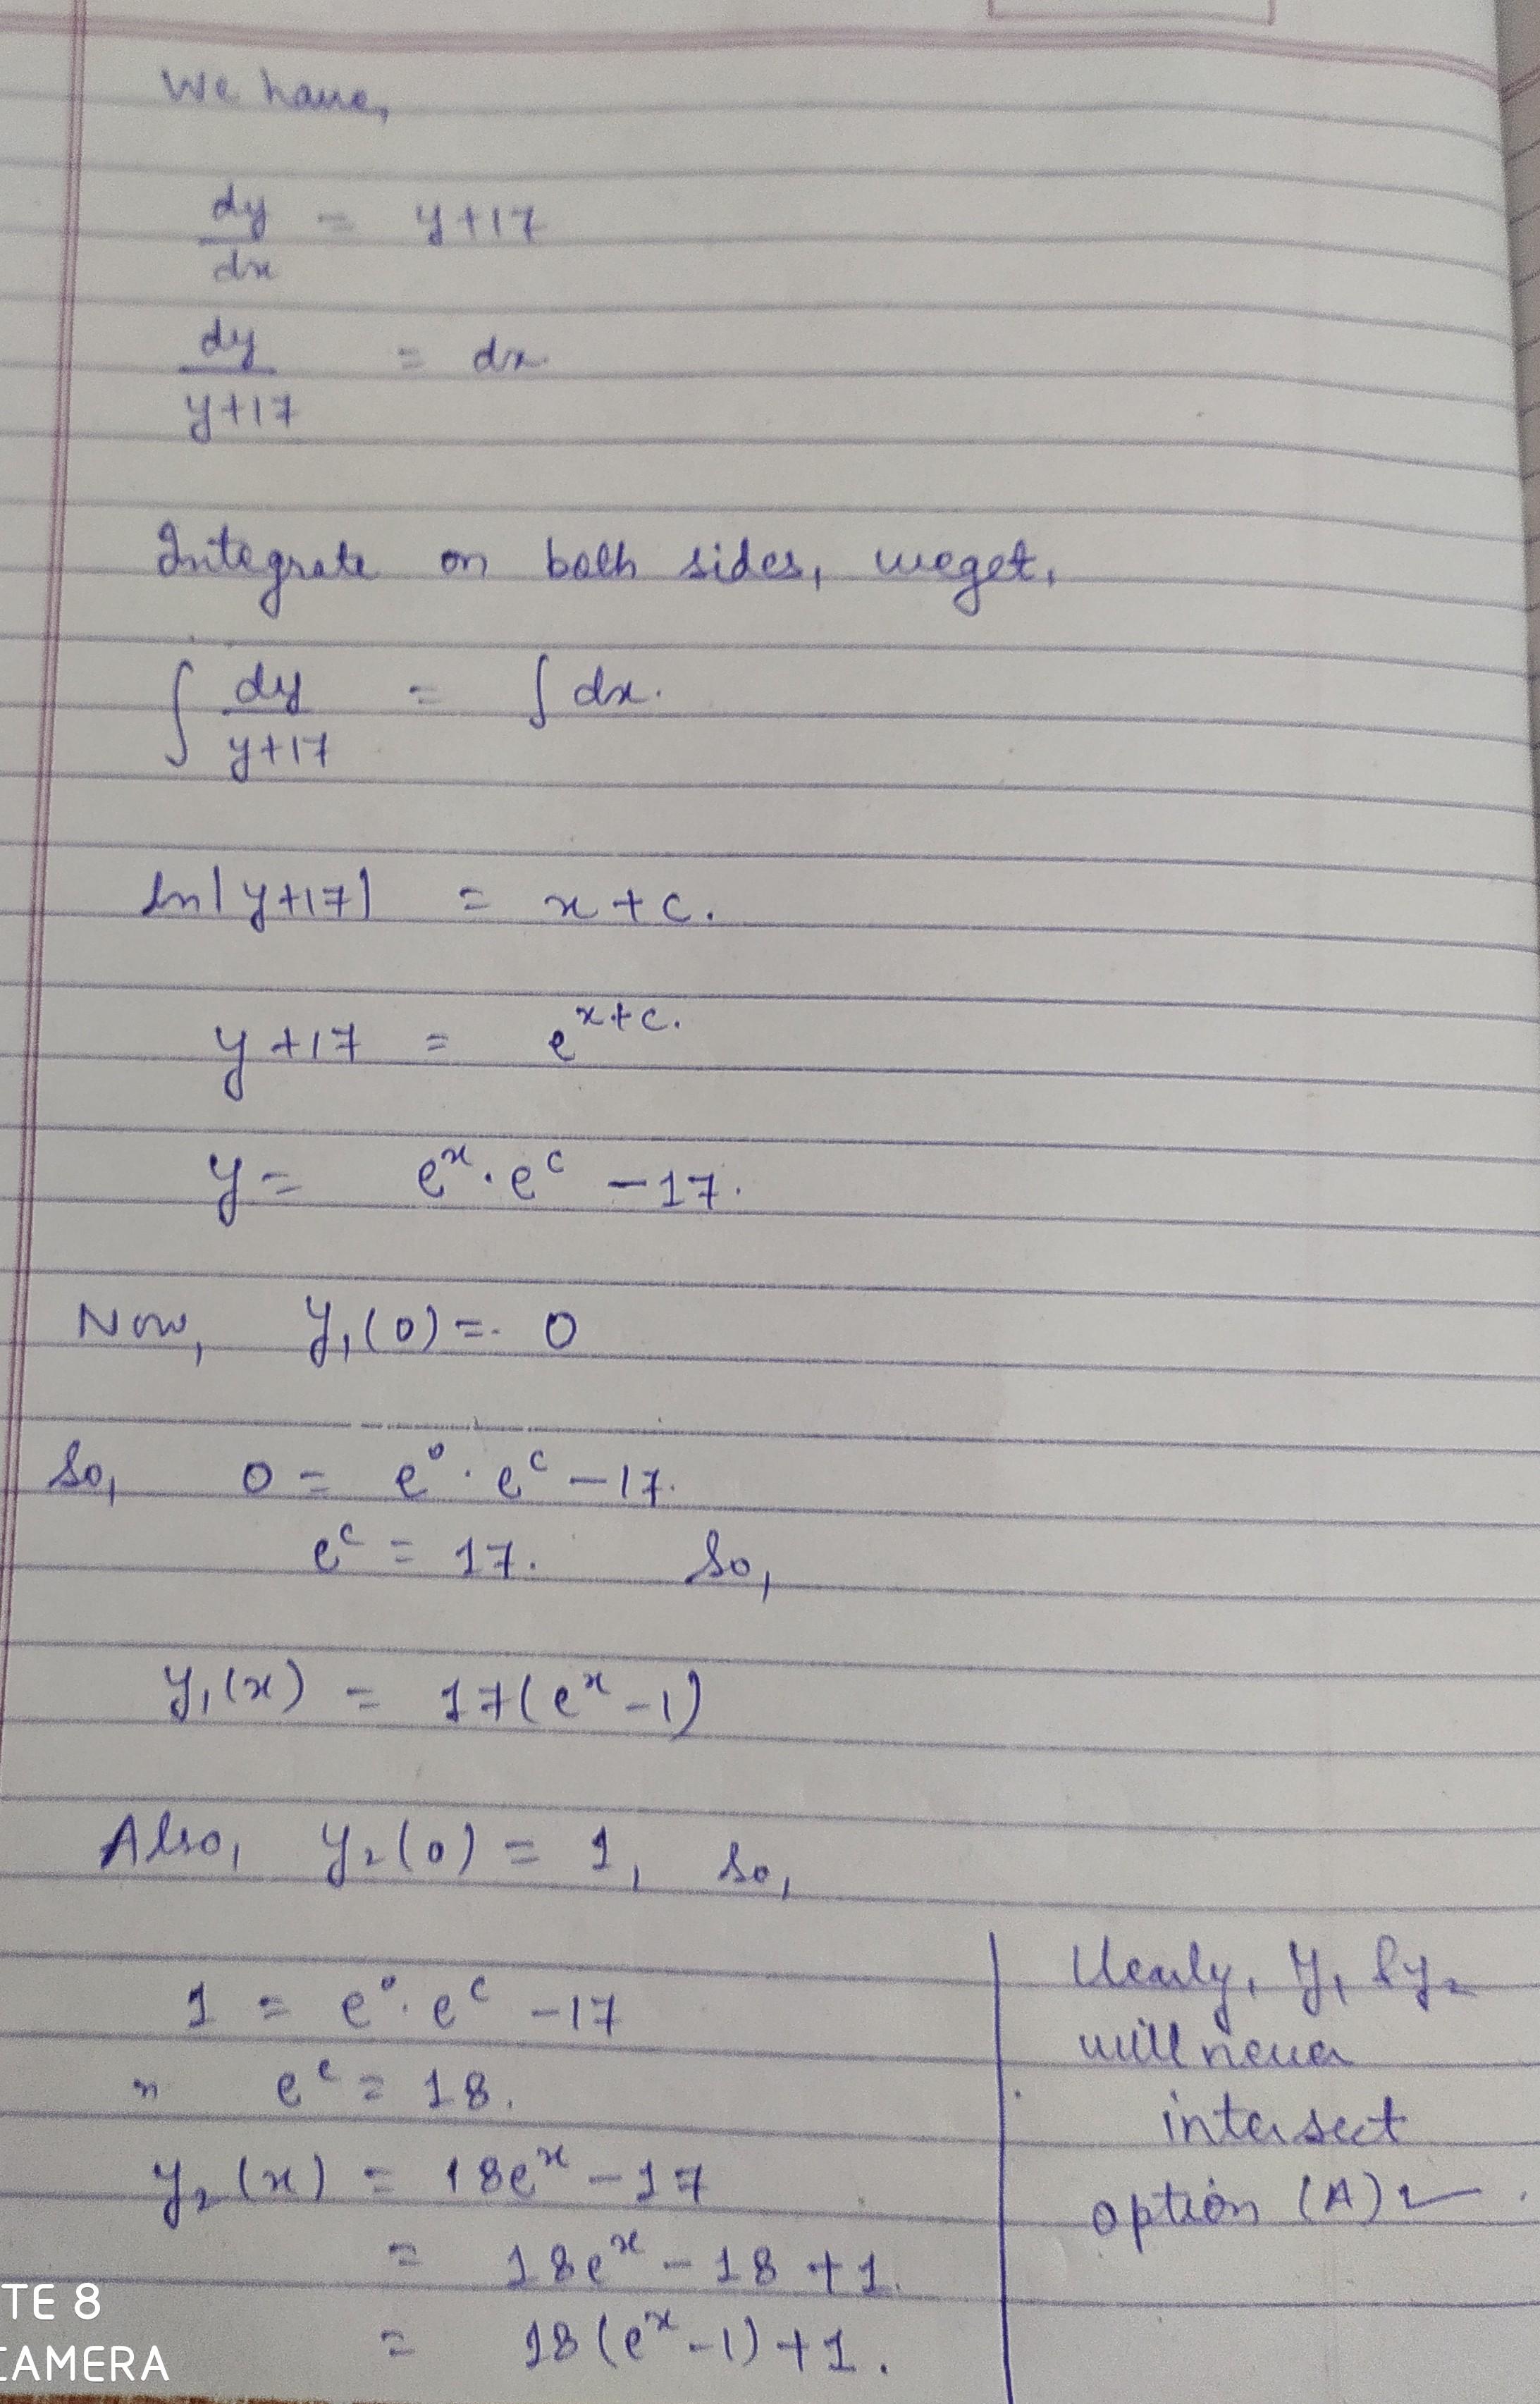 We have,
dy/dx = y+17
dy/y+17 = dx.
Integrate on both sides, we get,
∫ dy/y+17 = ∫ dx.
ln|y+17| = x + c.
y+17 = e^x+c.
y = e^x . e^c - 17.
Now, y₁(0) = 0
So, 0 = e^0 . e^c - 17.
e^c = 17. So,
y₁(x) = 17(e^x - 1)
Also, y₂(0) = 1, so,
1 = e^0 . e^c - 17
e^c = 18.
y₂(x) = 18e^x - 17
= 18e^x - 18 + 1.
= 18(e^x - 1) + 1.
Clearly, y₁ & y₂
will never
intersect
option (A) ✓.
TE 8
CAMERA